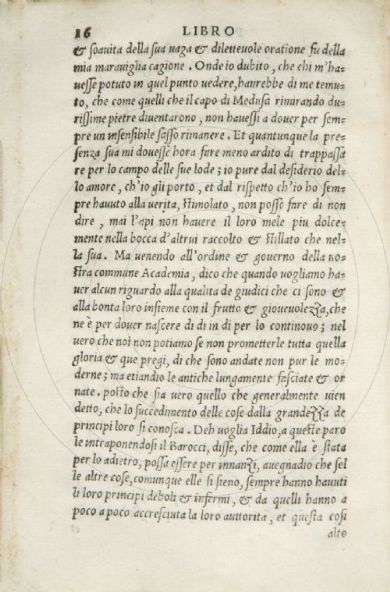 16 LIBRO
& soauita della sua uaga & diletteuole oratione fu della
mia marauiglia cagione. Onde io dubito, che chi m'ha-
uesse potuto in quel punto uedere, haurebbe di me temu-
to, che come quelli che il capo di Medusa rimirando du-
rissime pietre diuentarono, non hauessi a douer per sem-
pre un insensibile sasso rimanere. Et quantunque la pre-
senza sua mi douesse hora fare meno ardito di trappassa
re per lo campo delle sue lode; io pure dal desiderio del-
lo amore, ch'io gli porto, et dal rispetto ch'io ho sem-
pre hauuto alla uerita, stimolato, non posso fare di non
dire, mai l'api non hauere il loro mele piu dolce-
mente nella bocca d'altrui raccolto & stillato che nel-
la sua. Ma uenendo all'ordine & gouerno della no-
stra commune Academia, dico che quando uogliamo ha-
uer alcun riguardo alla qualita de giudici che ci sono &
alla bonta loro insieme con il frutto & gioueuolezza, che
ne è per douer nascere di di in di per lo continouo; nel
uero che noi non potiamo se non prometterle tutta quella
gloria & que pregi, di che sono andate non pur le mo-
derne; ma etiandio le antiche lungamente fasciate & or
nate. posto che sia uero quello che generalmente uien
detto, che lo succedimento delle cose dalla grandezza de
principi loro si conosca. Deh uoglia Iddio, a queste paro
le intraponendosi il Barocci, disse, che come ella è stata
per lo adietro, possa essere per innanzi, auegnadio che sel
le altre cose, comunque elle si sieno, sempre hanno hauuti
li loro principi deboli & infermi, & da quelli hanno a
poco a poco accresciuta la loro auttorita, et questa cosi
alto